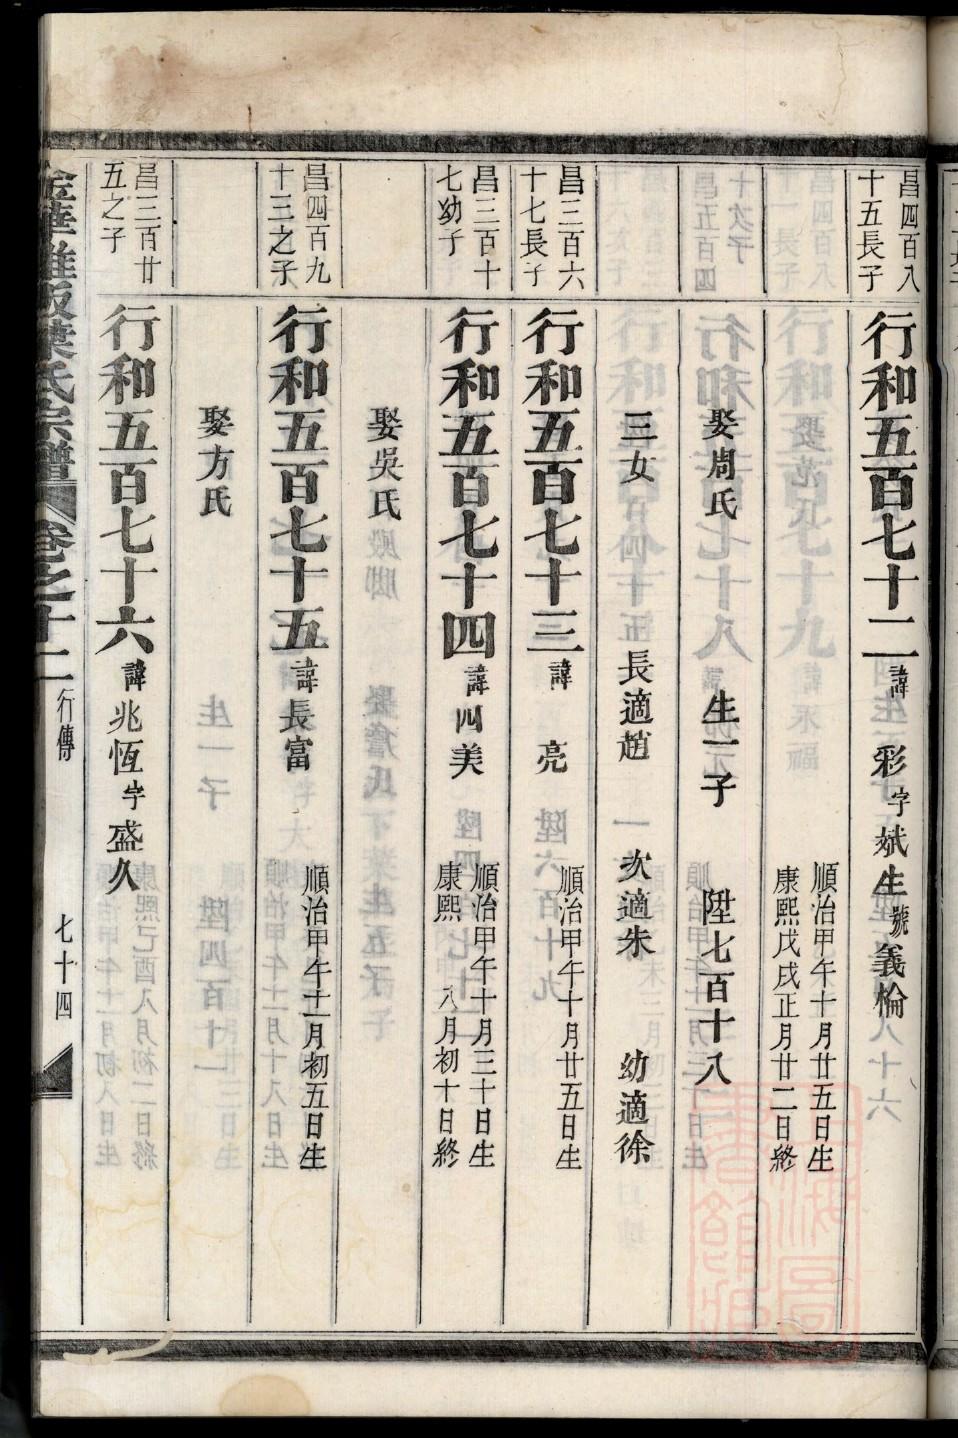 昌四百八
十五長子
行和五百七十二諱彩字斌生號義棆
順治甲午十月廿五日生
康熙戊戌正月廿二日終
娶周氏 生一子 陞七百十八
三女 長適趙 次適朱 幼適徐
昌三百六
十七長子
行和五百七十三諱亮
順治甲午十月廿五日生
昌三百十
七幼子
行和五百七十四諱四美
順治甲午十月三十日生
康熙 八月初十日終
娶吳氏
昌四百九
十三之子
行和五百七十五諱長富
順治甲午十一月初五日生
娶方氏
昌三百廿
五之子
行和五百七十六諱兆恆字盛久
葉氏宗譜 卷之十二 行傳 七十四